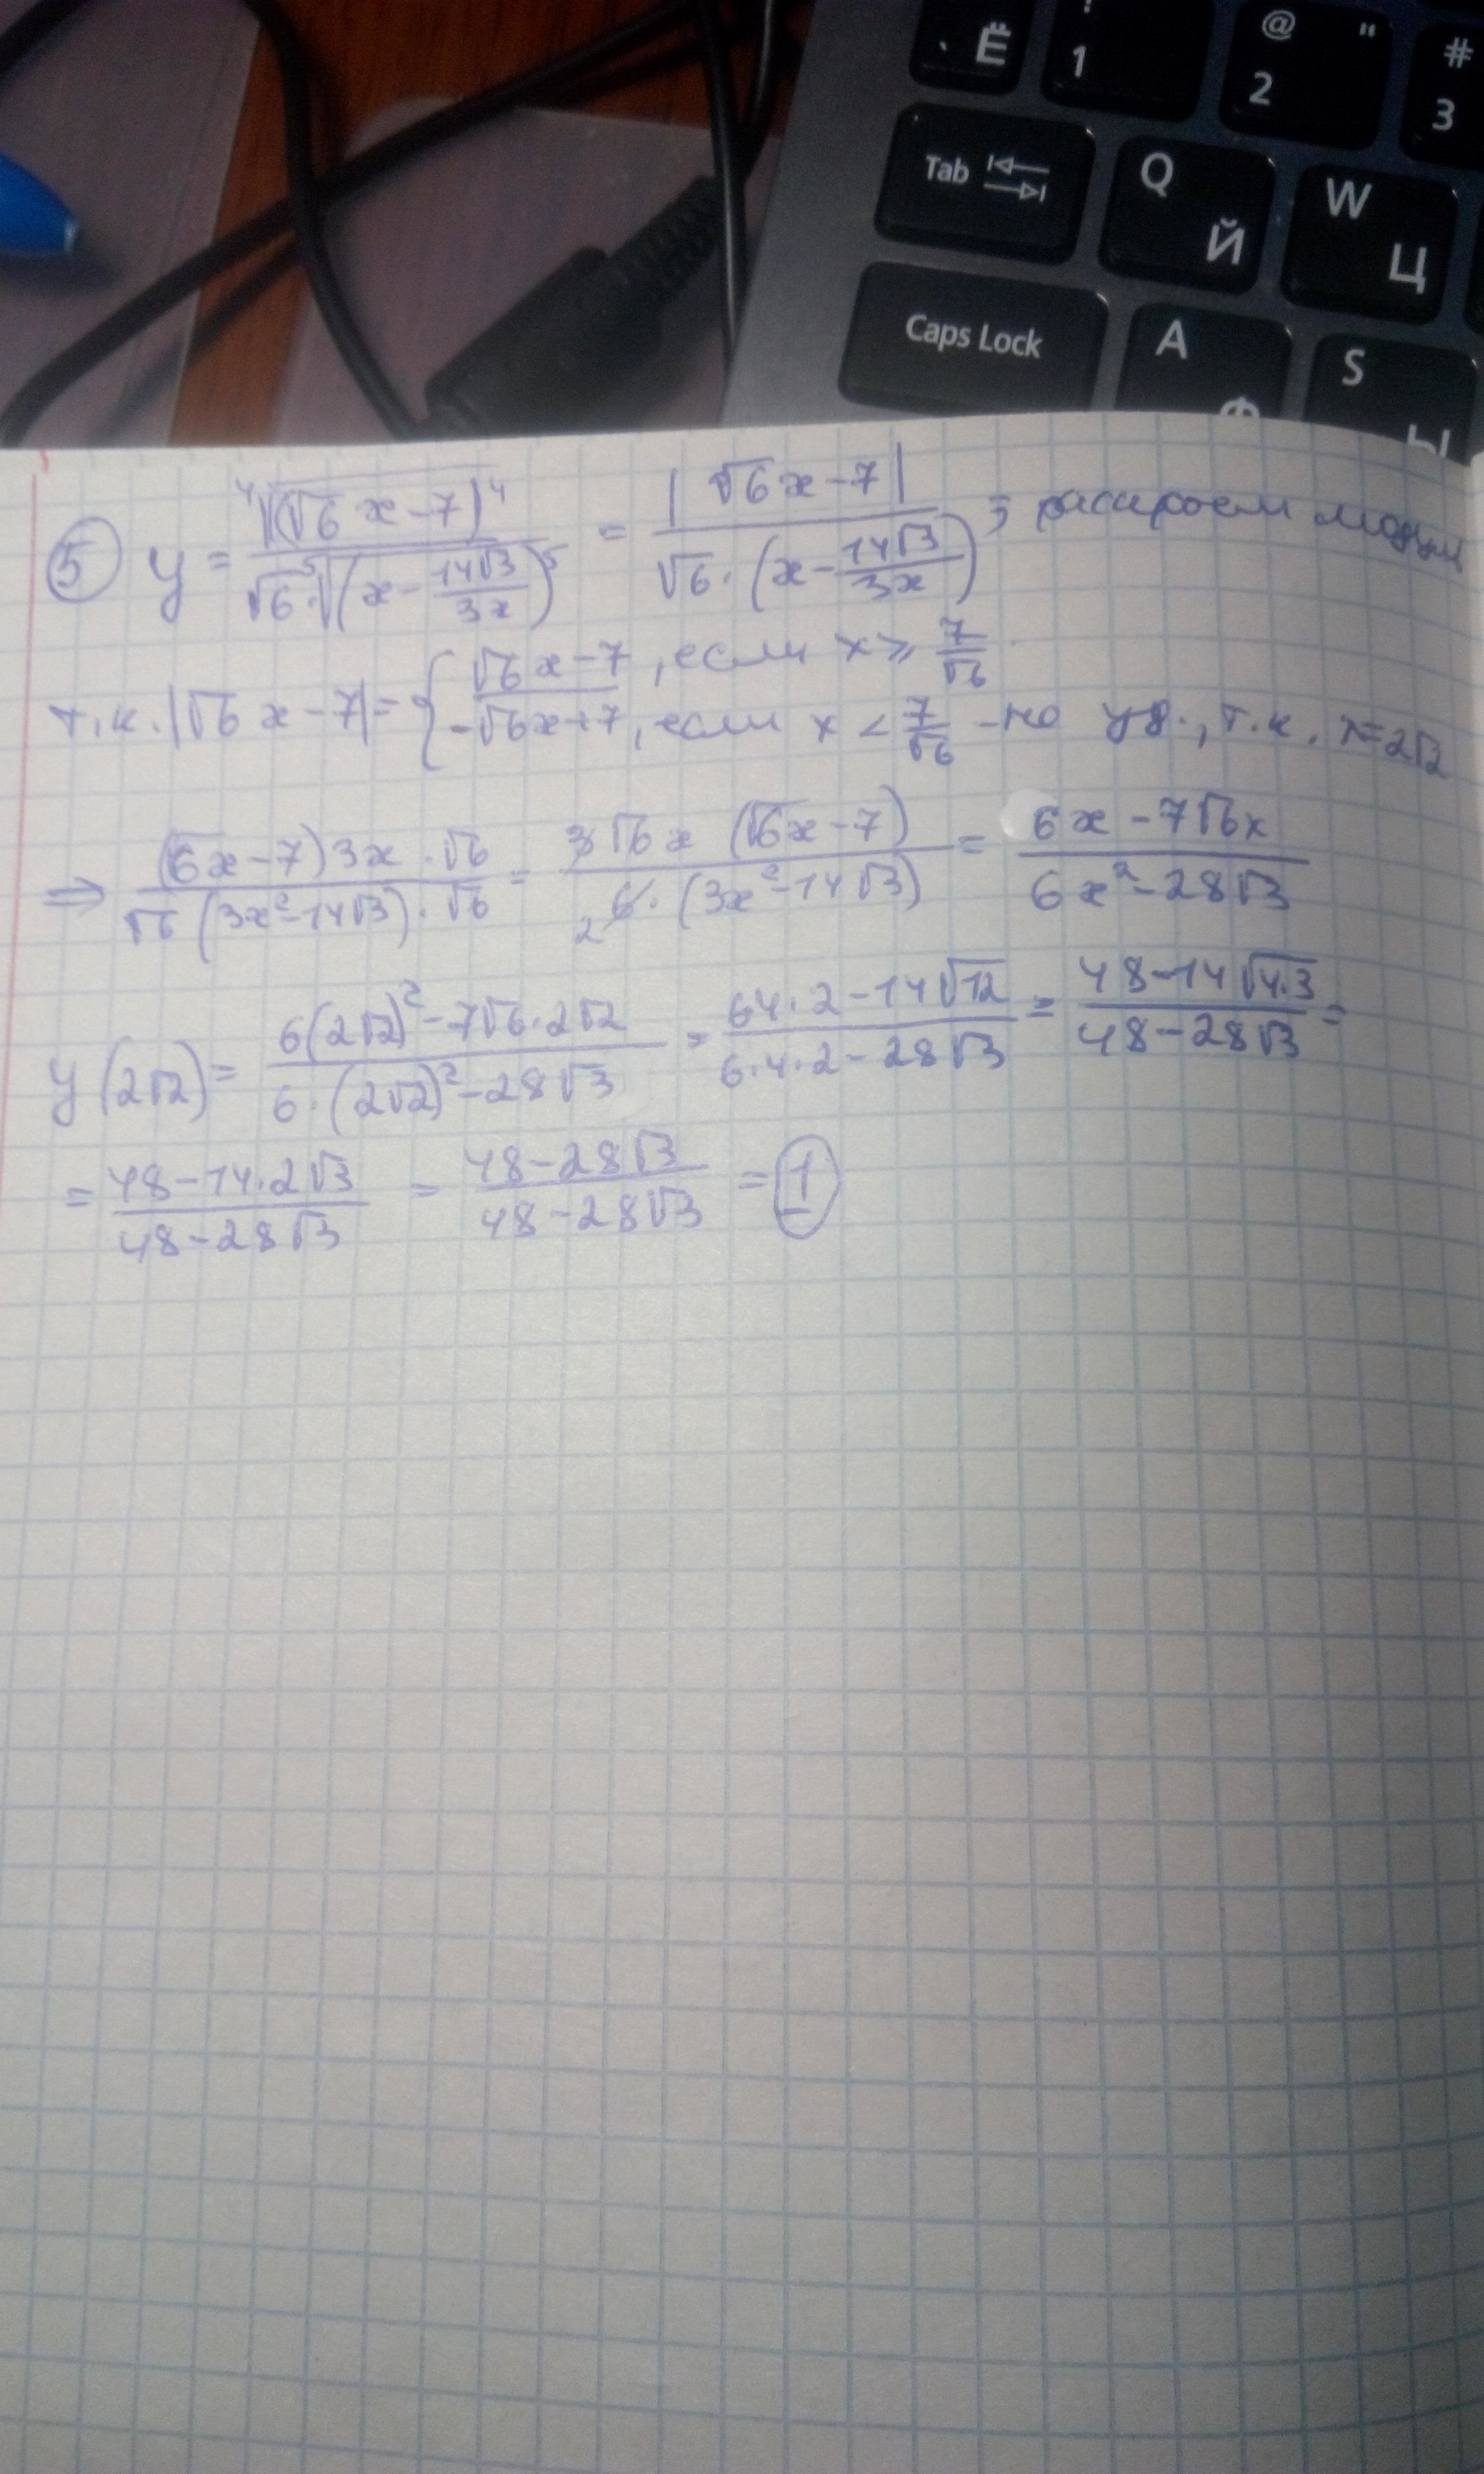 Ё ! 1 @ " 2 # 3
Tab Q Й W Ц
Caps Lock A Ф S Ы
⑤ y = ⁴√(√6 x − 7)⁴ / (√6 · ⁵√(x − 14√3/3x)⁵) = |√6 x − 7| / (√6 · (x − 14√3/3x)) ; раскроем модуль
т.к. |√6 x − 7| = { √6 x − 7, если x ⩾ 7/√6
−√6x + 7, если x < 7/√6 − не уд., т.к. x = 2√2
⇒ (√6x − 7)3x · √6 / (√6 (3x² − 14√3) · √6) = 3√6 x (√6x − 7) / (2 6 · (3x² − 14√3)) = (6x − 7√6x) / (6x² − 28√3)
y(2√2) = (6(2√2)² − 7√6 · 2√2) / (6 · (2√2)² − 28√3) = (64 · 2 − 14√12) / (6 · 4 · 2 − 28√3) = (48 − 14√4·3) / (48 − 28√3) =
= (48 − 14 · 2√3) / (48 − 28√3) = (48 − 28√3) / (48 − 28√3) = 1